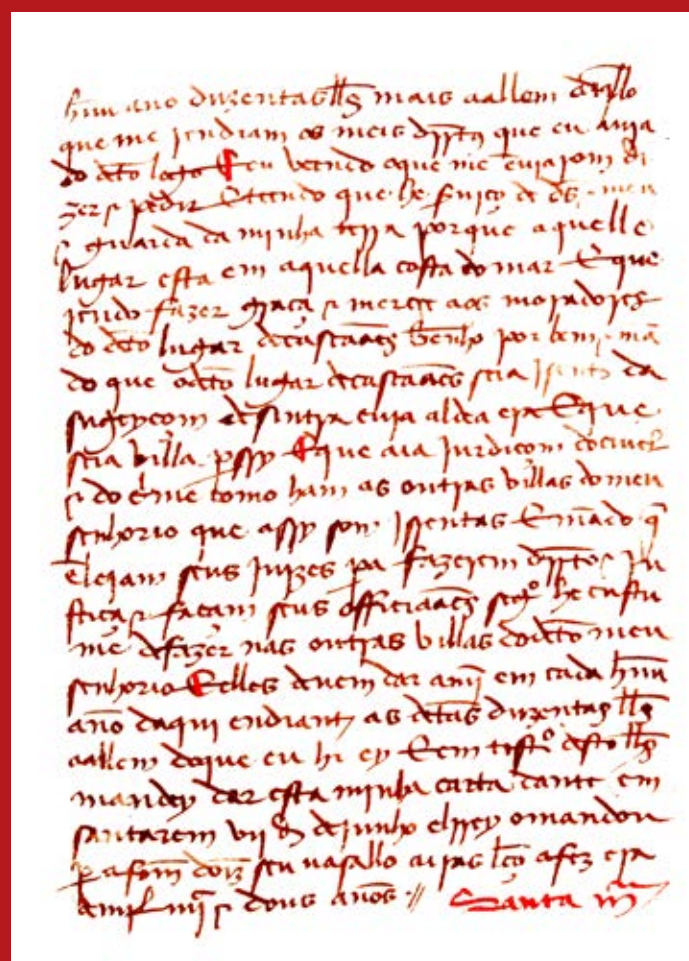 hũu ano duzentas llꝭ mais aallem daqllo
que me rendiam os meus dr̃tos que eu auia
do dcto logo E eu veendo o que me enuiarom di
zer e pedir E teendo que he seruiço de ds e meu
e guarda da minha terra porque aquelle
lugar esta em aquella costa do mar E que
rendo fazer graça e merce aos moradores
do dcto lugar de cascaaes tenho por bem e mã
do que o dcto lugar de cascaaes seia isento da
sugeycom de sintra cuia aldea era E que
seia villa per ssy E que aia Jurdicom do ciuel
e do crime como ham as outras villas do meu
senhorio que assy som issentas E mãdo q̃
Elejam seus Juizes pa fazerem dr̃to e Ju
stiça e façam seus officiaaes segdo he custu
me de fazer nas outras villas do dcto meu
senhorio E elles deuem dar a mĩ em cada hũu
ano daqui endiante as dctas duzentas llꝭ
aallem do que eu hi ey E em testo desto lhes
mandey dar esta minha carta dante em
santarem vii ds de junho elRey o mandou
per afom doiz seu uasallo airas lço a fez era
de mil iiijc e dous anos // Santa ma